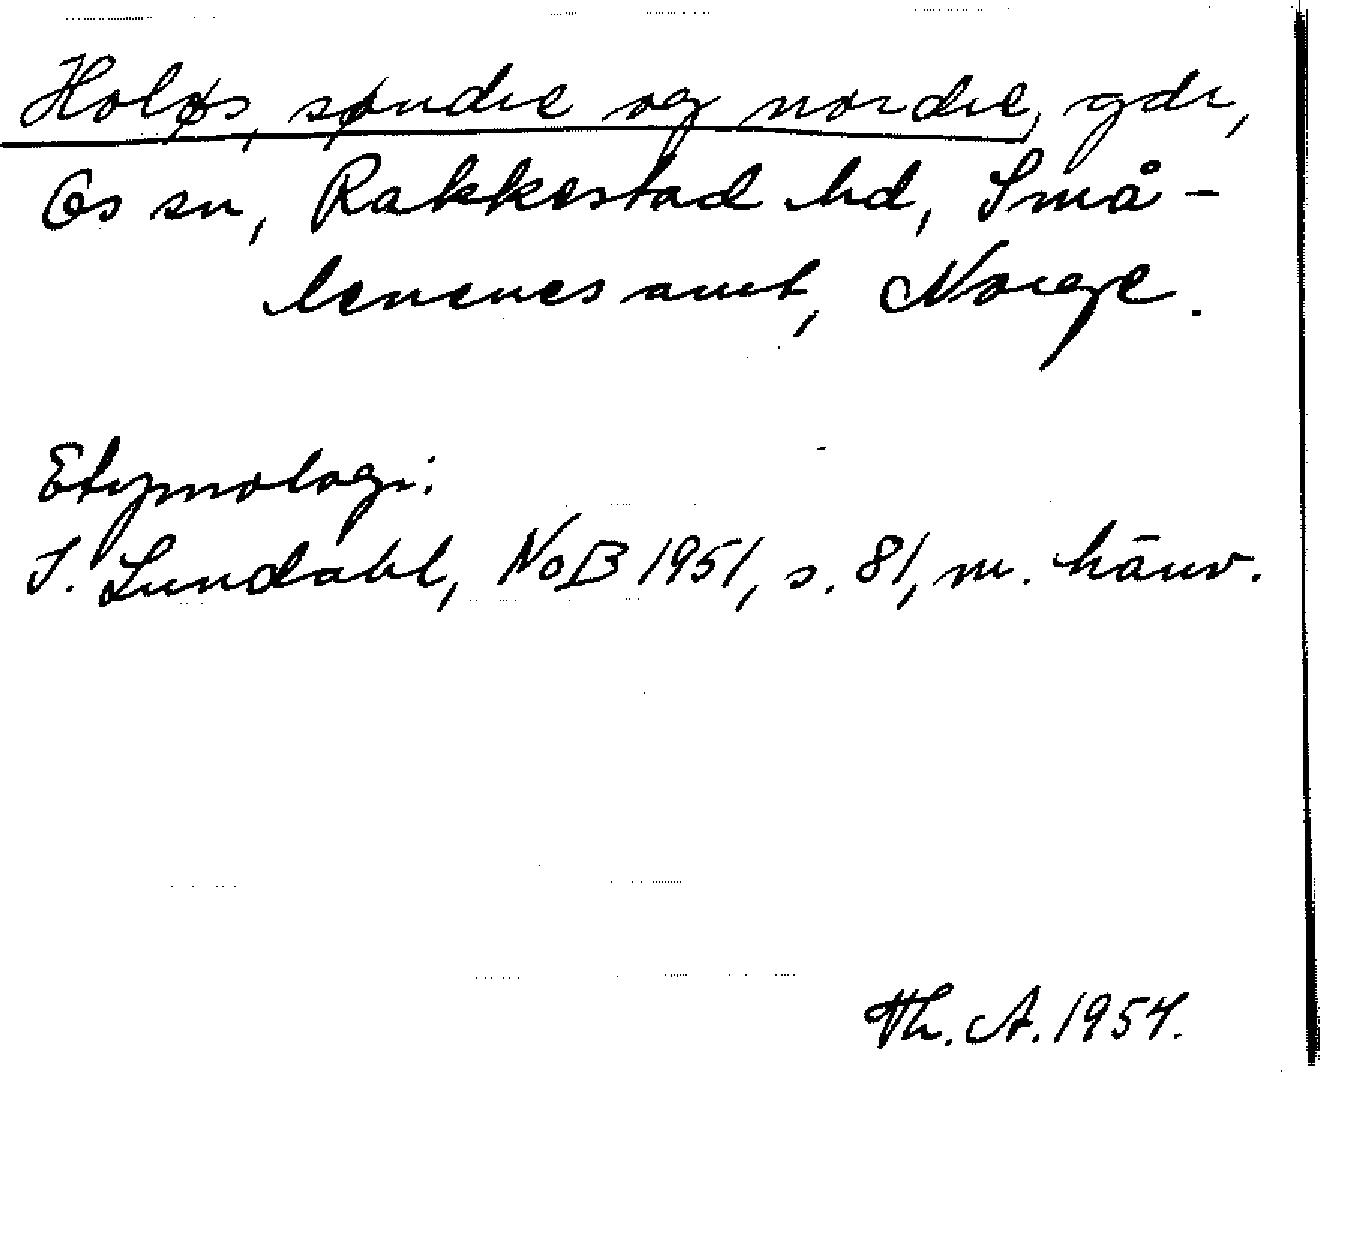 Holøs, søndre og nordre, gdr,
Os sn, Rakkestad hd, Små-
lenenes amt, Norge.
Etymologi:
I. Lundahl, NoB 1951, s. 81, m. hänv.
Th. A. 1954.